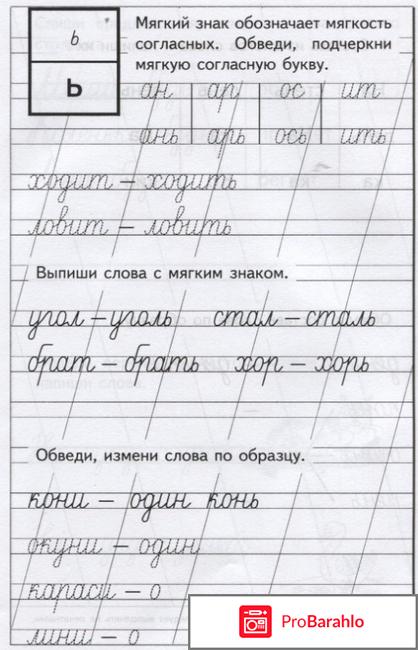 ь Мягкий знак обозначает мягкость
согласных. Обведи, подчеркни
Ь мягкую согласную букву.
ан ар ос ит
ань арь ось ить
ходит – ходить
ловит – ловить
Выпиши слова с мягким знаком.
угол – уголь стал – сталь
брат – брать хор – хорь
Обведи, измени слова по образцу.
кони – один конь
окуни – один
караси – о
лини – о
ProBarahlo